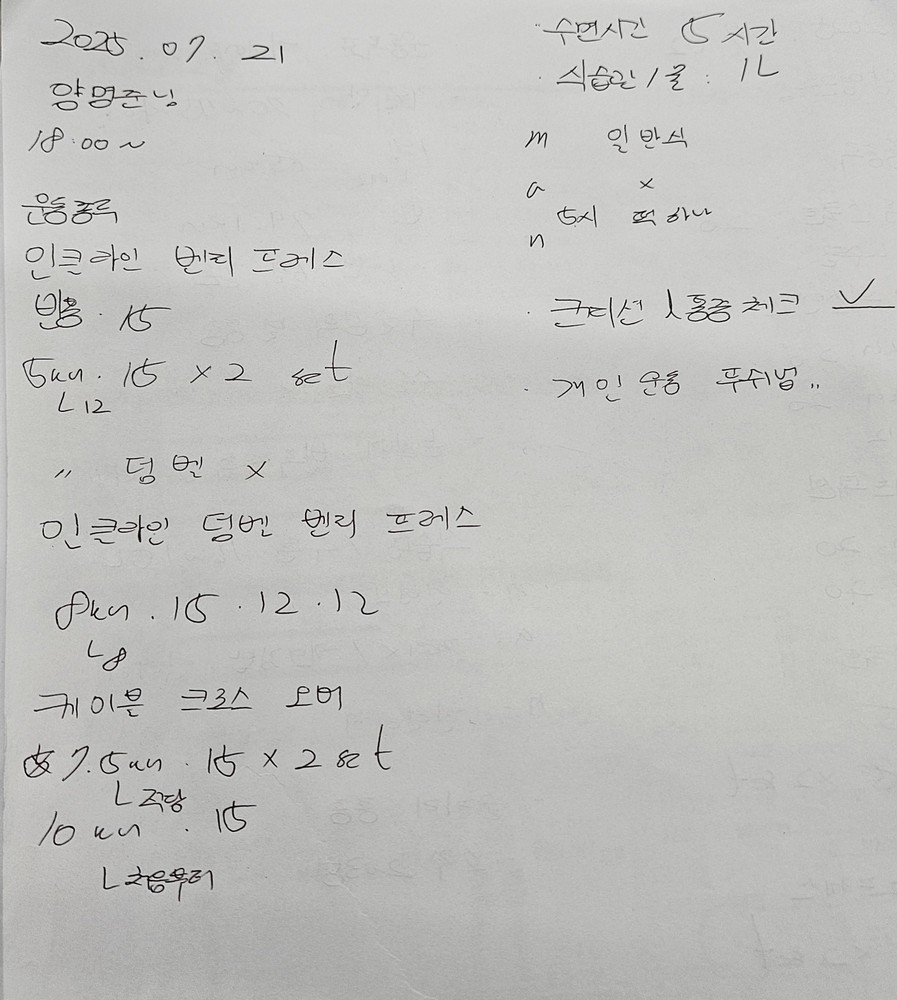 2025.07.21
양명준님
18:00~
운동종목
인클라인 벤치 프레스
빈봉 · 15
5kg · 15 × 2 set
ㄴ12
〃 덤벨 x
인클라인 덤벨 벤치 프레스
8kg · 15 · 12 · 12
ㄴ8
케이블 크로스 오버
7.5kg · 15 × 2 set
ㄴ적당
10kg · 15
ㄴ처음부터
· 수면시간 5시간
· 식습관/물 : 1L
m 일반식
a x
n 5시 떡 하나
· 컨디션 / 통증체크 ✓
· 개인 운동 푸쉬업..